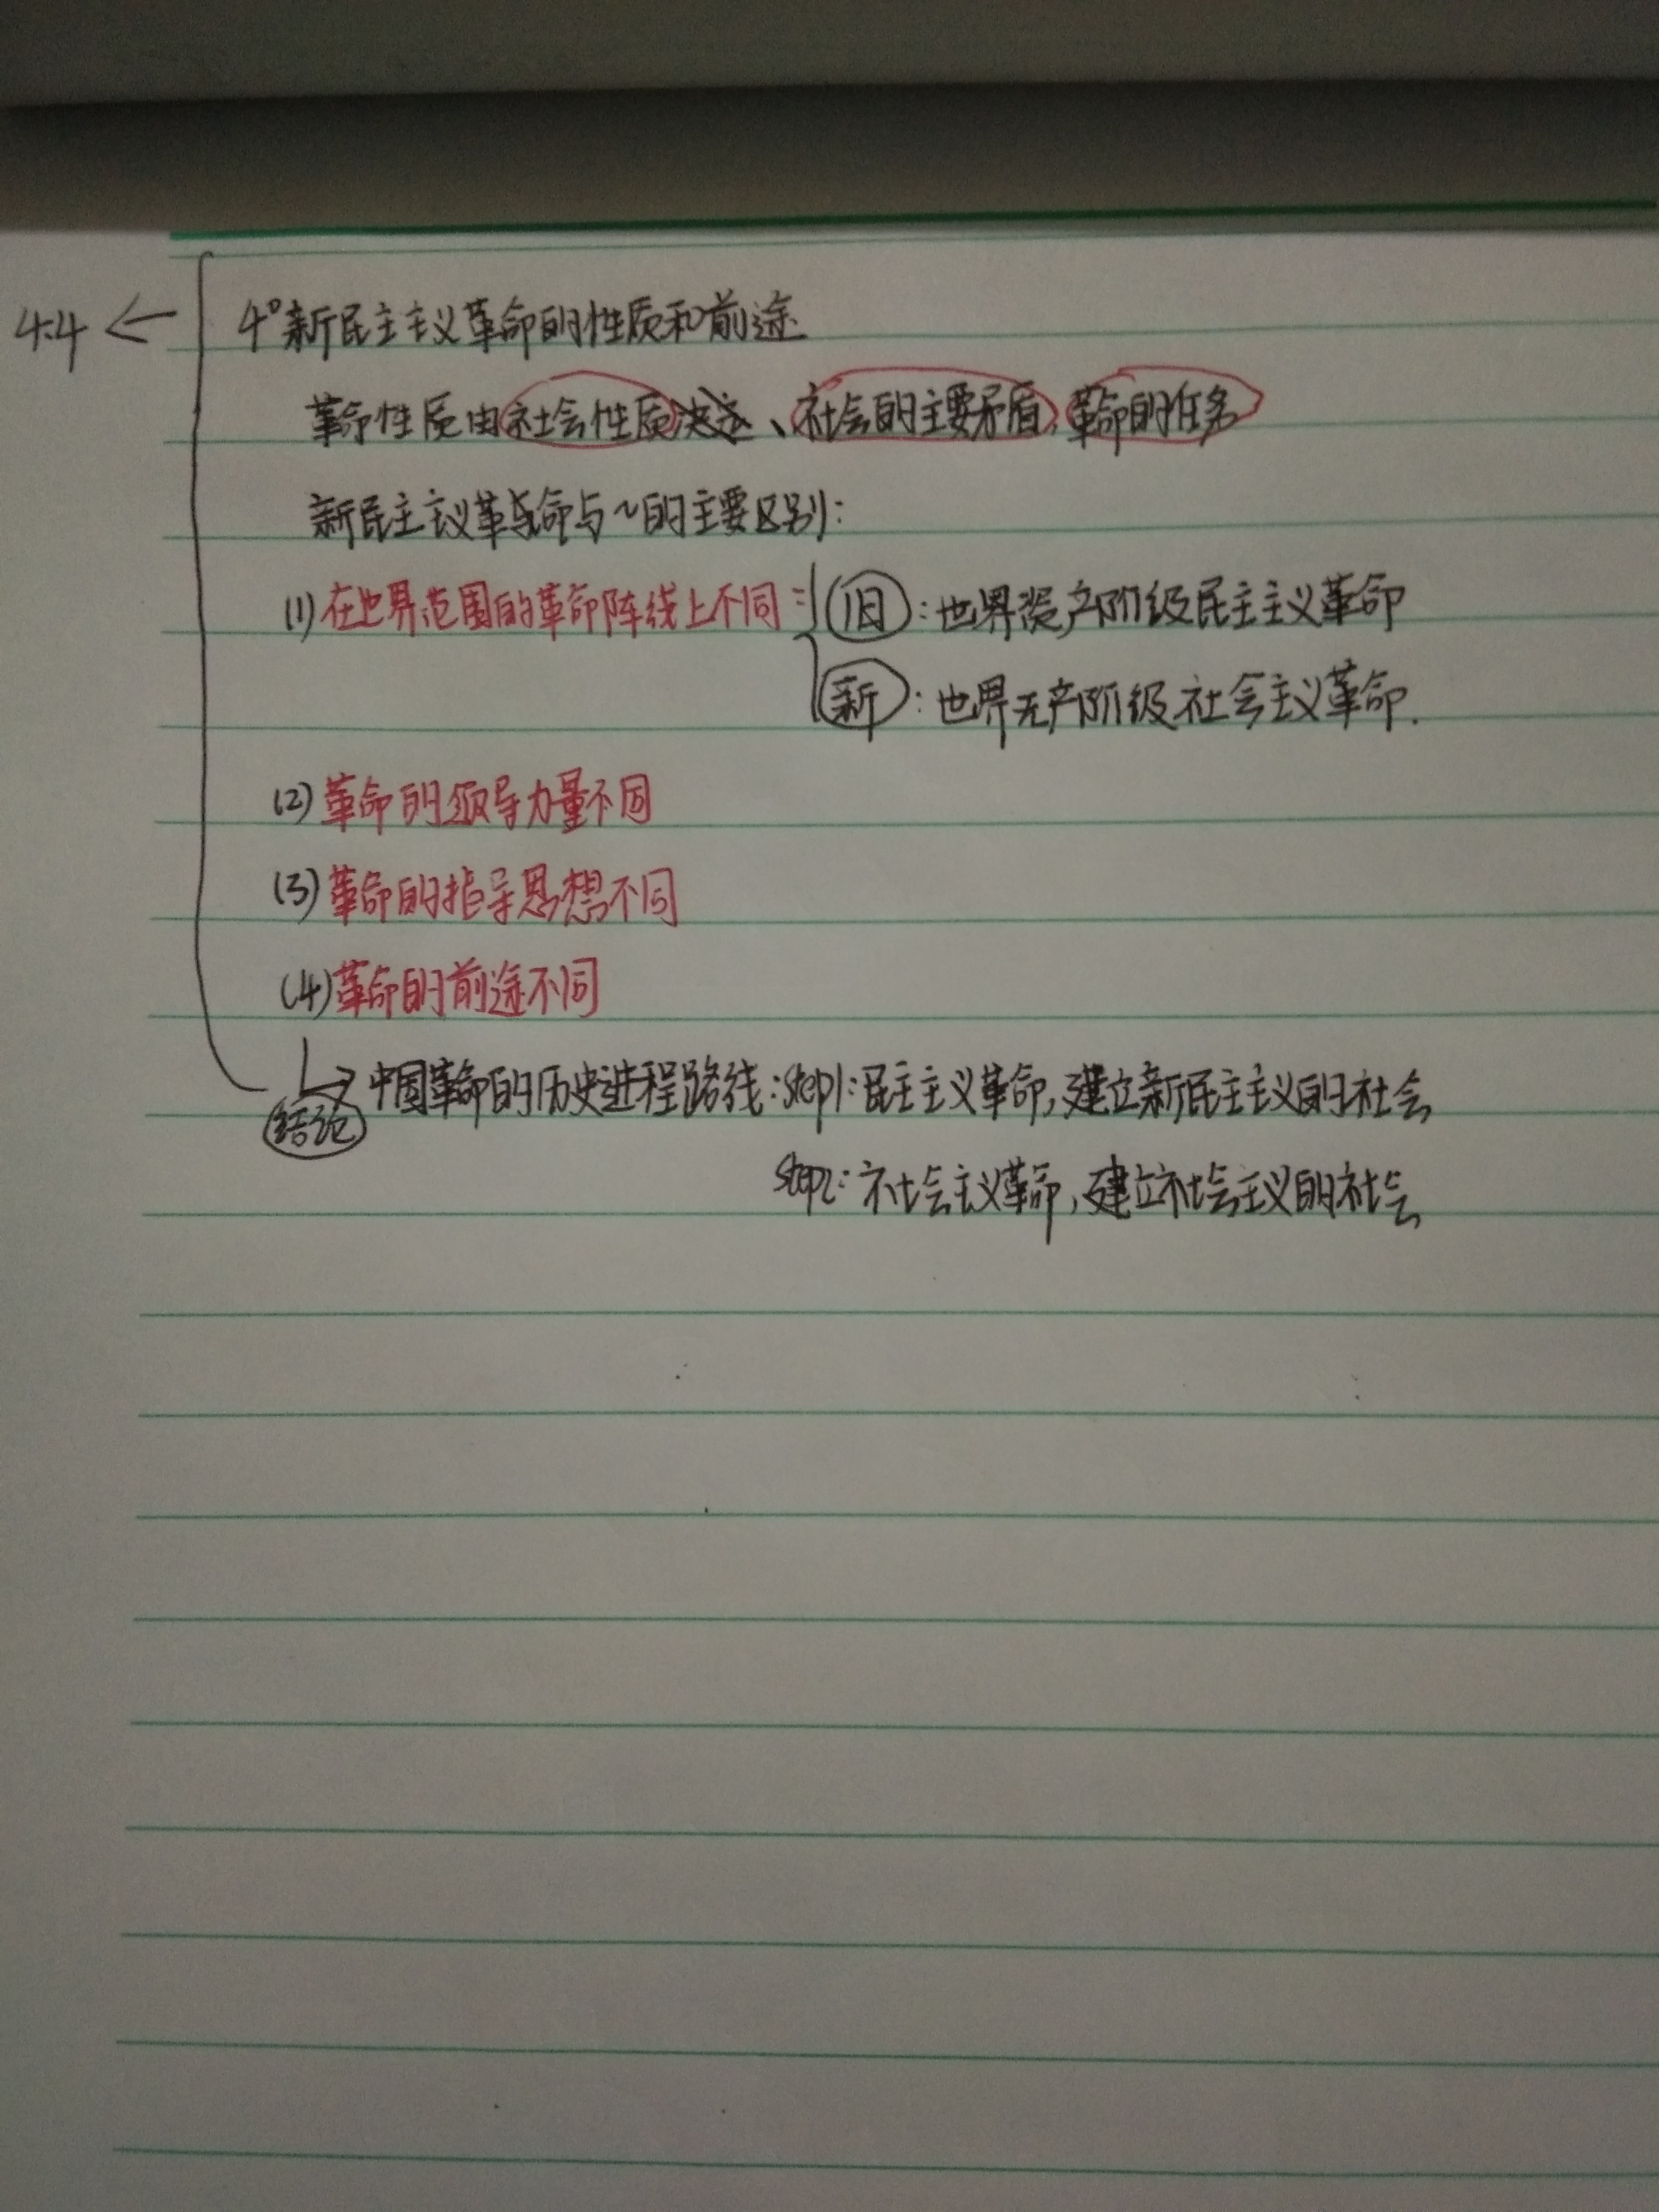 4.4 ← 4° 新民主主义革命的性质和前途
革命性质由社会性质决定、社会的主要矛盾、革命的任务
新民主主义革命与~的主要区别:
(1) 在世界范围的革命阵线上不同: 旧: 世界资产阶级民主主义革命
新: 世界无产阶级社会主义革命.
(2) 革命的领导力量不同
(3) 革命的指导思想不同
(4) 革命的前途不同
→ 中国革命的历史进程路线: step1: 民主主义革命, 建立新民主主义的社会
结论
step2: 社会主义革命, 建立社会主义的社会